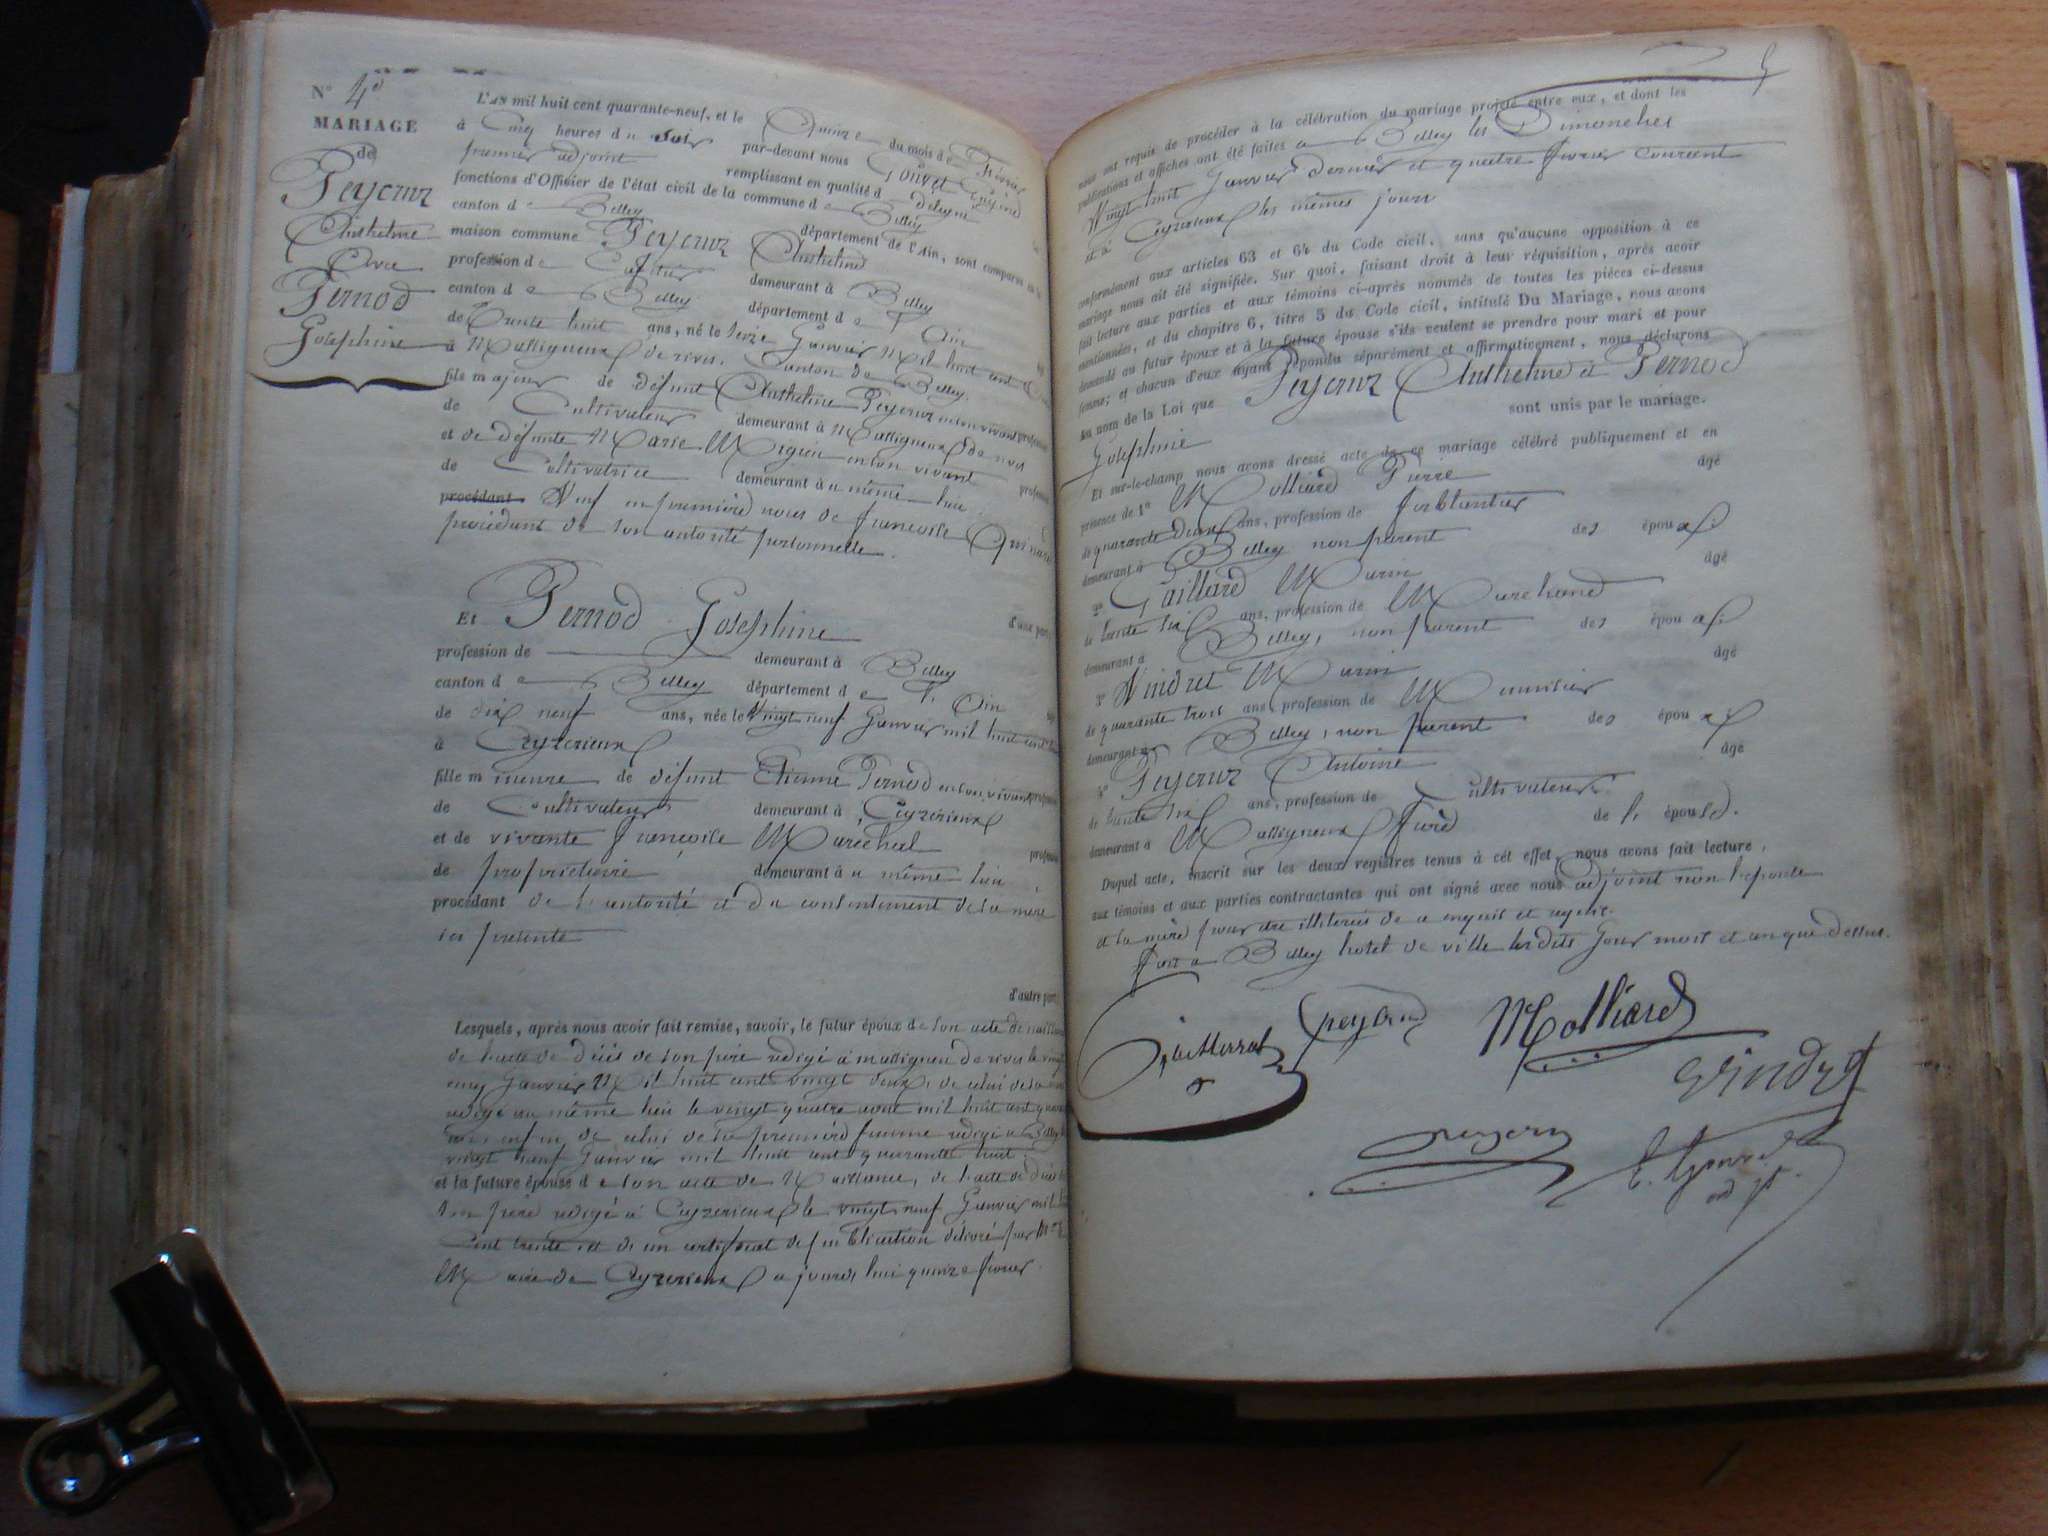 N° 4
MARIAGE
de
Peycruz
Anthelme
Avec
Pernod
Josephine
L'AN mil huit cent quarante-neuf, et le Quinze du mois de Février
à Cinq heures du soir par-devant nous Gouvet
premier adjoint remplissant en qualité de délégué
fonctions d'Officier de l'état civil de la commune de Belley
canton de Belley département de l'Ain, sont comparus en la
maison commune Peycruz Anthelme
profession de demeurant à Belley
canton de Belley département de l'Ain
de Trente huit ans, né le seize Janvier mil huit cent
à Massigneux de rives. Canton de Belley
fils majeur de défunt Anthelme Peycruz en son vivant profession
de Cultivateur demeurant à Massigneux de rives
et de défunte Marie en son vivant profession
de Cultivatrice demeurant au même lieu
procédant Veuf en premières noces de françoise
procédant de son autorité personnelle.
d'une part,
Et Pernod Josephine
profession de demeurant à Belley
canton de Belley département de l'Ain
de dix neuf ans, née le Vingt neuf Janvier mil huit cent
à Ceyzerieux
fille mineure de défunt Etienne Pernod en son vivant profession
de Cultivateur demeurant à Ceyzerieux
et de vivante françoise Maréchal profession
de propriétaire demeurant au même lieu,
procédant de l'autorité et du consentement de sa mère
ici présente
d'autre part,
Lesquels, après nous avoir fait remise, savoir, le futur époux de son acte de naissance
de l'acte de décès de son père rédigé à massigneu de rives le vingt
cinq Janvier Mil huit cent vingt deux, de celui de sa mère
rédigé au même lieu le vingt quatre août mil huit cent
enfin de celui de sa première femme rédigé à Belley le
vingt neuf Janvier mil huit cent quarante huit
et la future épouse de son acte de Naissance, de l'acte de décès de
son père rédigé à Ceyzerieux le vingt neuf Janvier mil huit
cent trente et de un certificat de publication délivré par Mr le
Maire de Ceyzerieux aujourd'hui quinze février.
nous ont requis de procéder à la célébration du mariage projeté entre eux, et dont les
publications et affiches ont été faites à Belley les Dimanches
Vingt huit Janvier dernier et quatre février courant
et à Ceyzerieux les mêmes jours
conformément aux articles 63 et 64 du Code civil, sans qu'aucune opposition à ce
mariage nous ait été signifiée. Sur quoi, faisant droit à leur réquisition, après avoir
fait lecture aux parties et aux témoins ci-après nommés de toutes les pièces ci-dessus
mentionnées, et du chapitre 6, titre 5 du Code civil, intitulé Du Mariage, nous avons
demandé au futur époux et à la future épouse s'ils veulent se prendre pour mari et pour
femme; et chacun d'eux ayant répondu séparément et affirmativement, nous déclarons
au nom de la Loi que Peycruz Anthelme et Pernod
Josephine sont unis par le mariage.
Et sur-le-champ nous avons dressé acte de ce mariage célébré publiquement et en
présence de 1° Molliard Pierre âgé
de quarante deux ans, profession de ferblantier
demeurant à Belley non parent des époux.
2° Gaillard Marin âgé
de trente six ans, profession de Marchand
demeurant à Belley, non parent des époux.
3° Vindret Marin âgé
de quarante trois ans, profession de Menuisier
demeurant à Belley, non parent des époux
4° Peycruz Antoine âgé
de trente six ans, profession de Cultivateur.
demeurant à Massigneux frère de l'époux.
Duquel acte, inscrit sur les deux registres tenus à cet effet, nous avons fait lecture,
aux témoins et aux parties contractantes qui ont signé avec nous adjoint non l'épouse
et la mère pour être illitérées de ce enquis et requis.
Fait à Belley hotel de ville lesdits Jour mois et an que dessus.
Molliard
Vindret